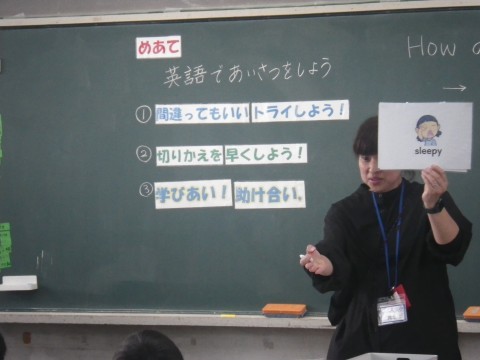 めあて
英語であいさつをしよう
How
① 間違ってもいい トライしよう!
② 切りかえを 早くしよう!
③ 学びあい! 助け合い。
sleepy